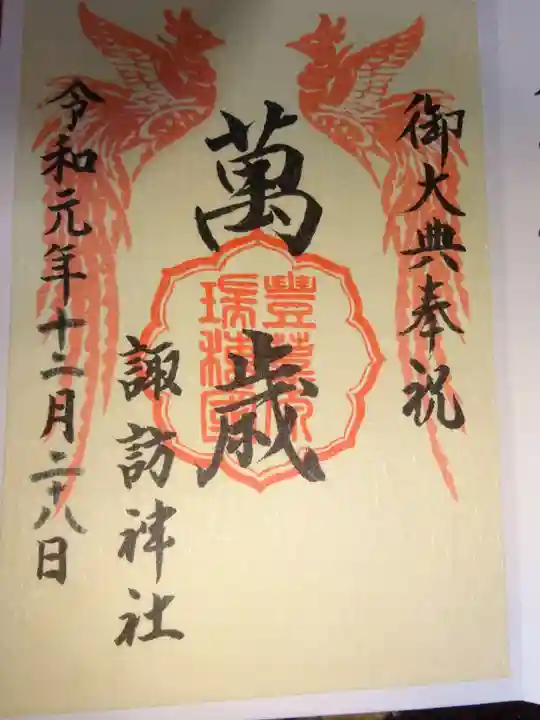 御大典奉祝
萬歳
豐葦原
瑞穂國
諏訪神社
令和元年十二月二十八日